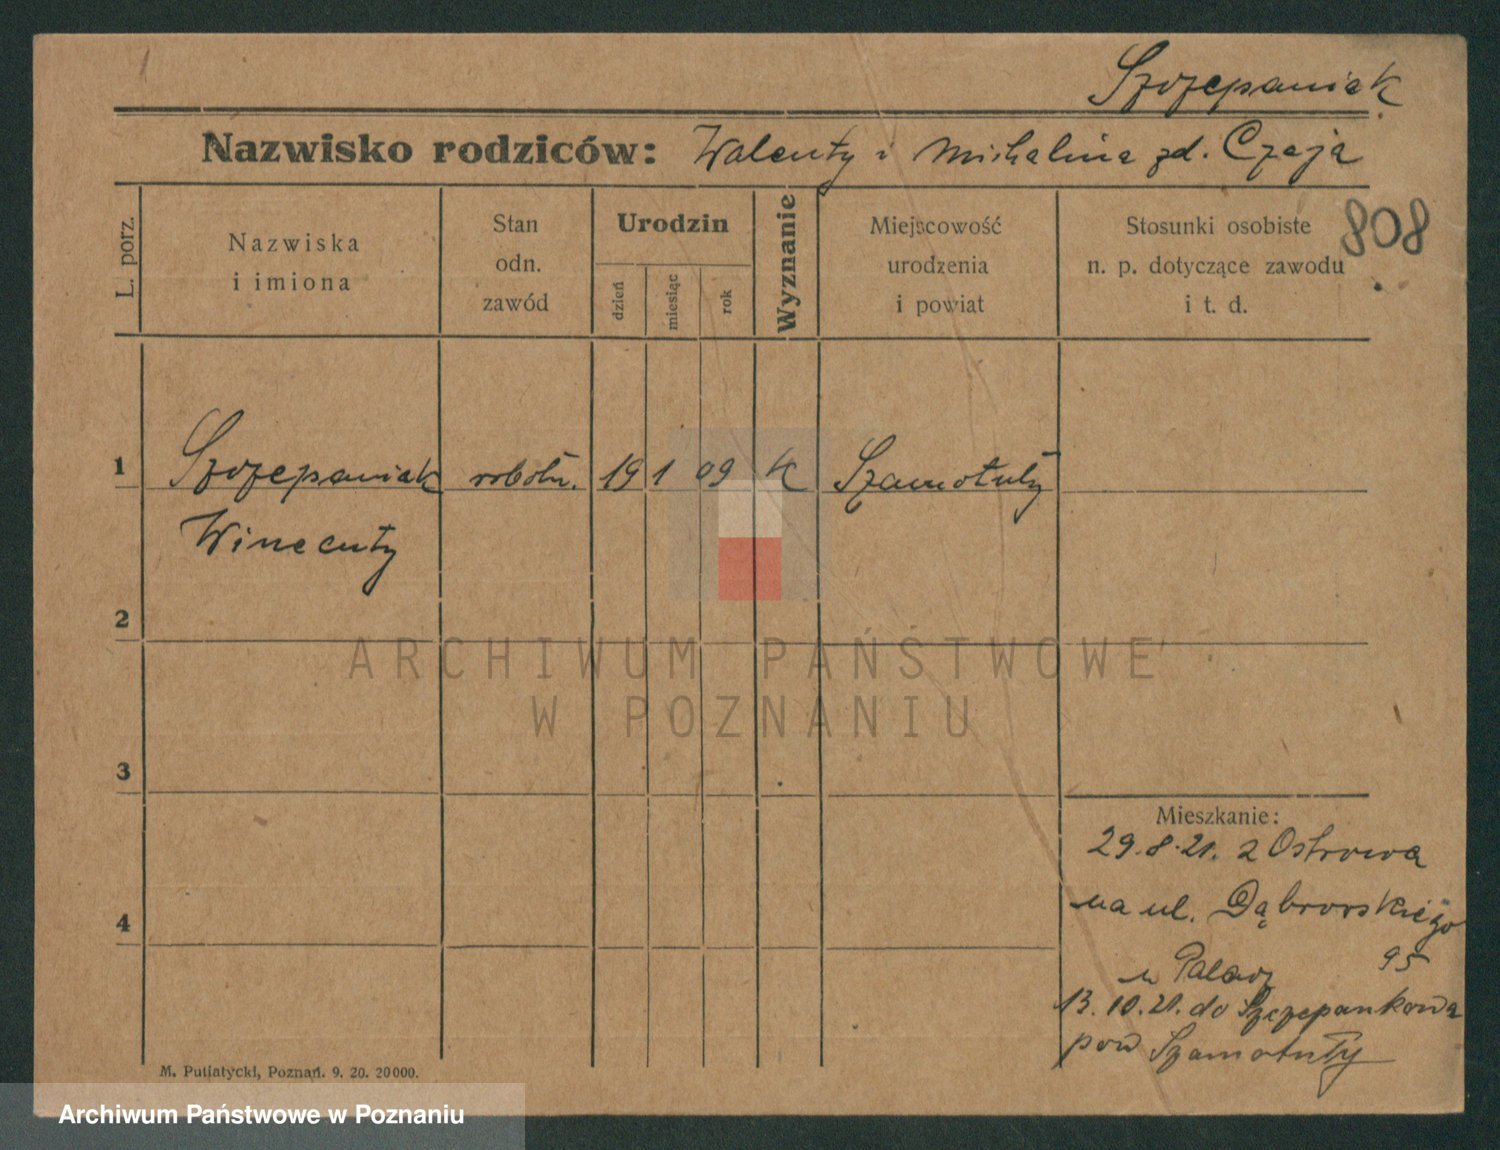 Szczepaniak
Nazwisko rodziców: Walenty i Michalina zd. Czaja
808
L. porz.
Nazwiska
i imiona
Stan
odn.
zawód
Urodzin
dzień
miesiąc
rok
Wyznanie
Miejscowość
urodzenia
i powiat
Stosunki osobiste
n. p. dotyczące zawodu
i t. d.
1 Szczepaniak robotn. 19 1 09 K Szamotuły
Wincenty
2
ARCHIWUM PAŃSTWOWE
W POZNANIU
3
4
Mieszkanie:
29.8.21. z Ostrowa
na ul. Dąbrowskiego
95
u
13.10.21. do Szczepankowa
pow Szamotuły
M. Putiatycki, Poznań. 9. 20. 20000.
Archiwum Państwowe w Poznaniu